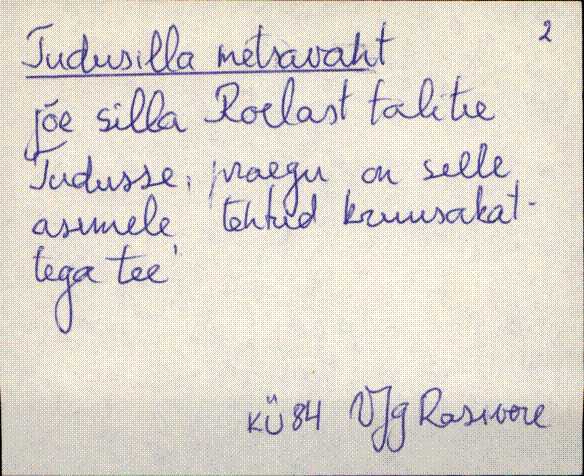 2
Tudusilla metsavaht
jõe silla Roelast talitee
Tudusse, praegu on selle
asemele tehtud kruusakat-
tega tee
KÜ 84 VJg Rasivere